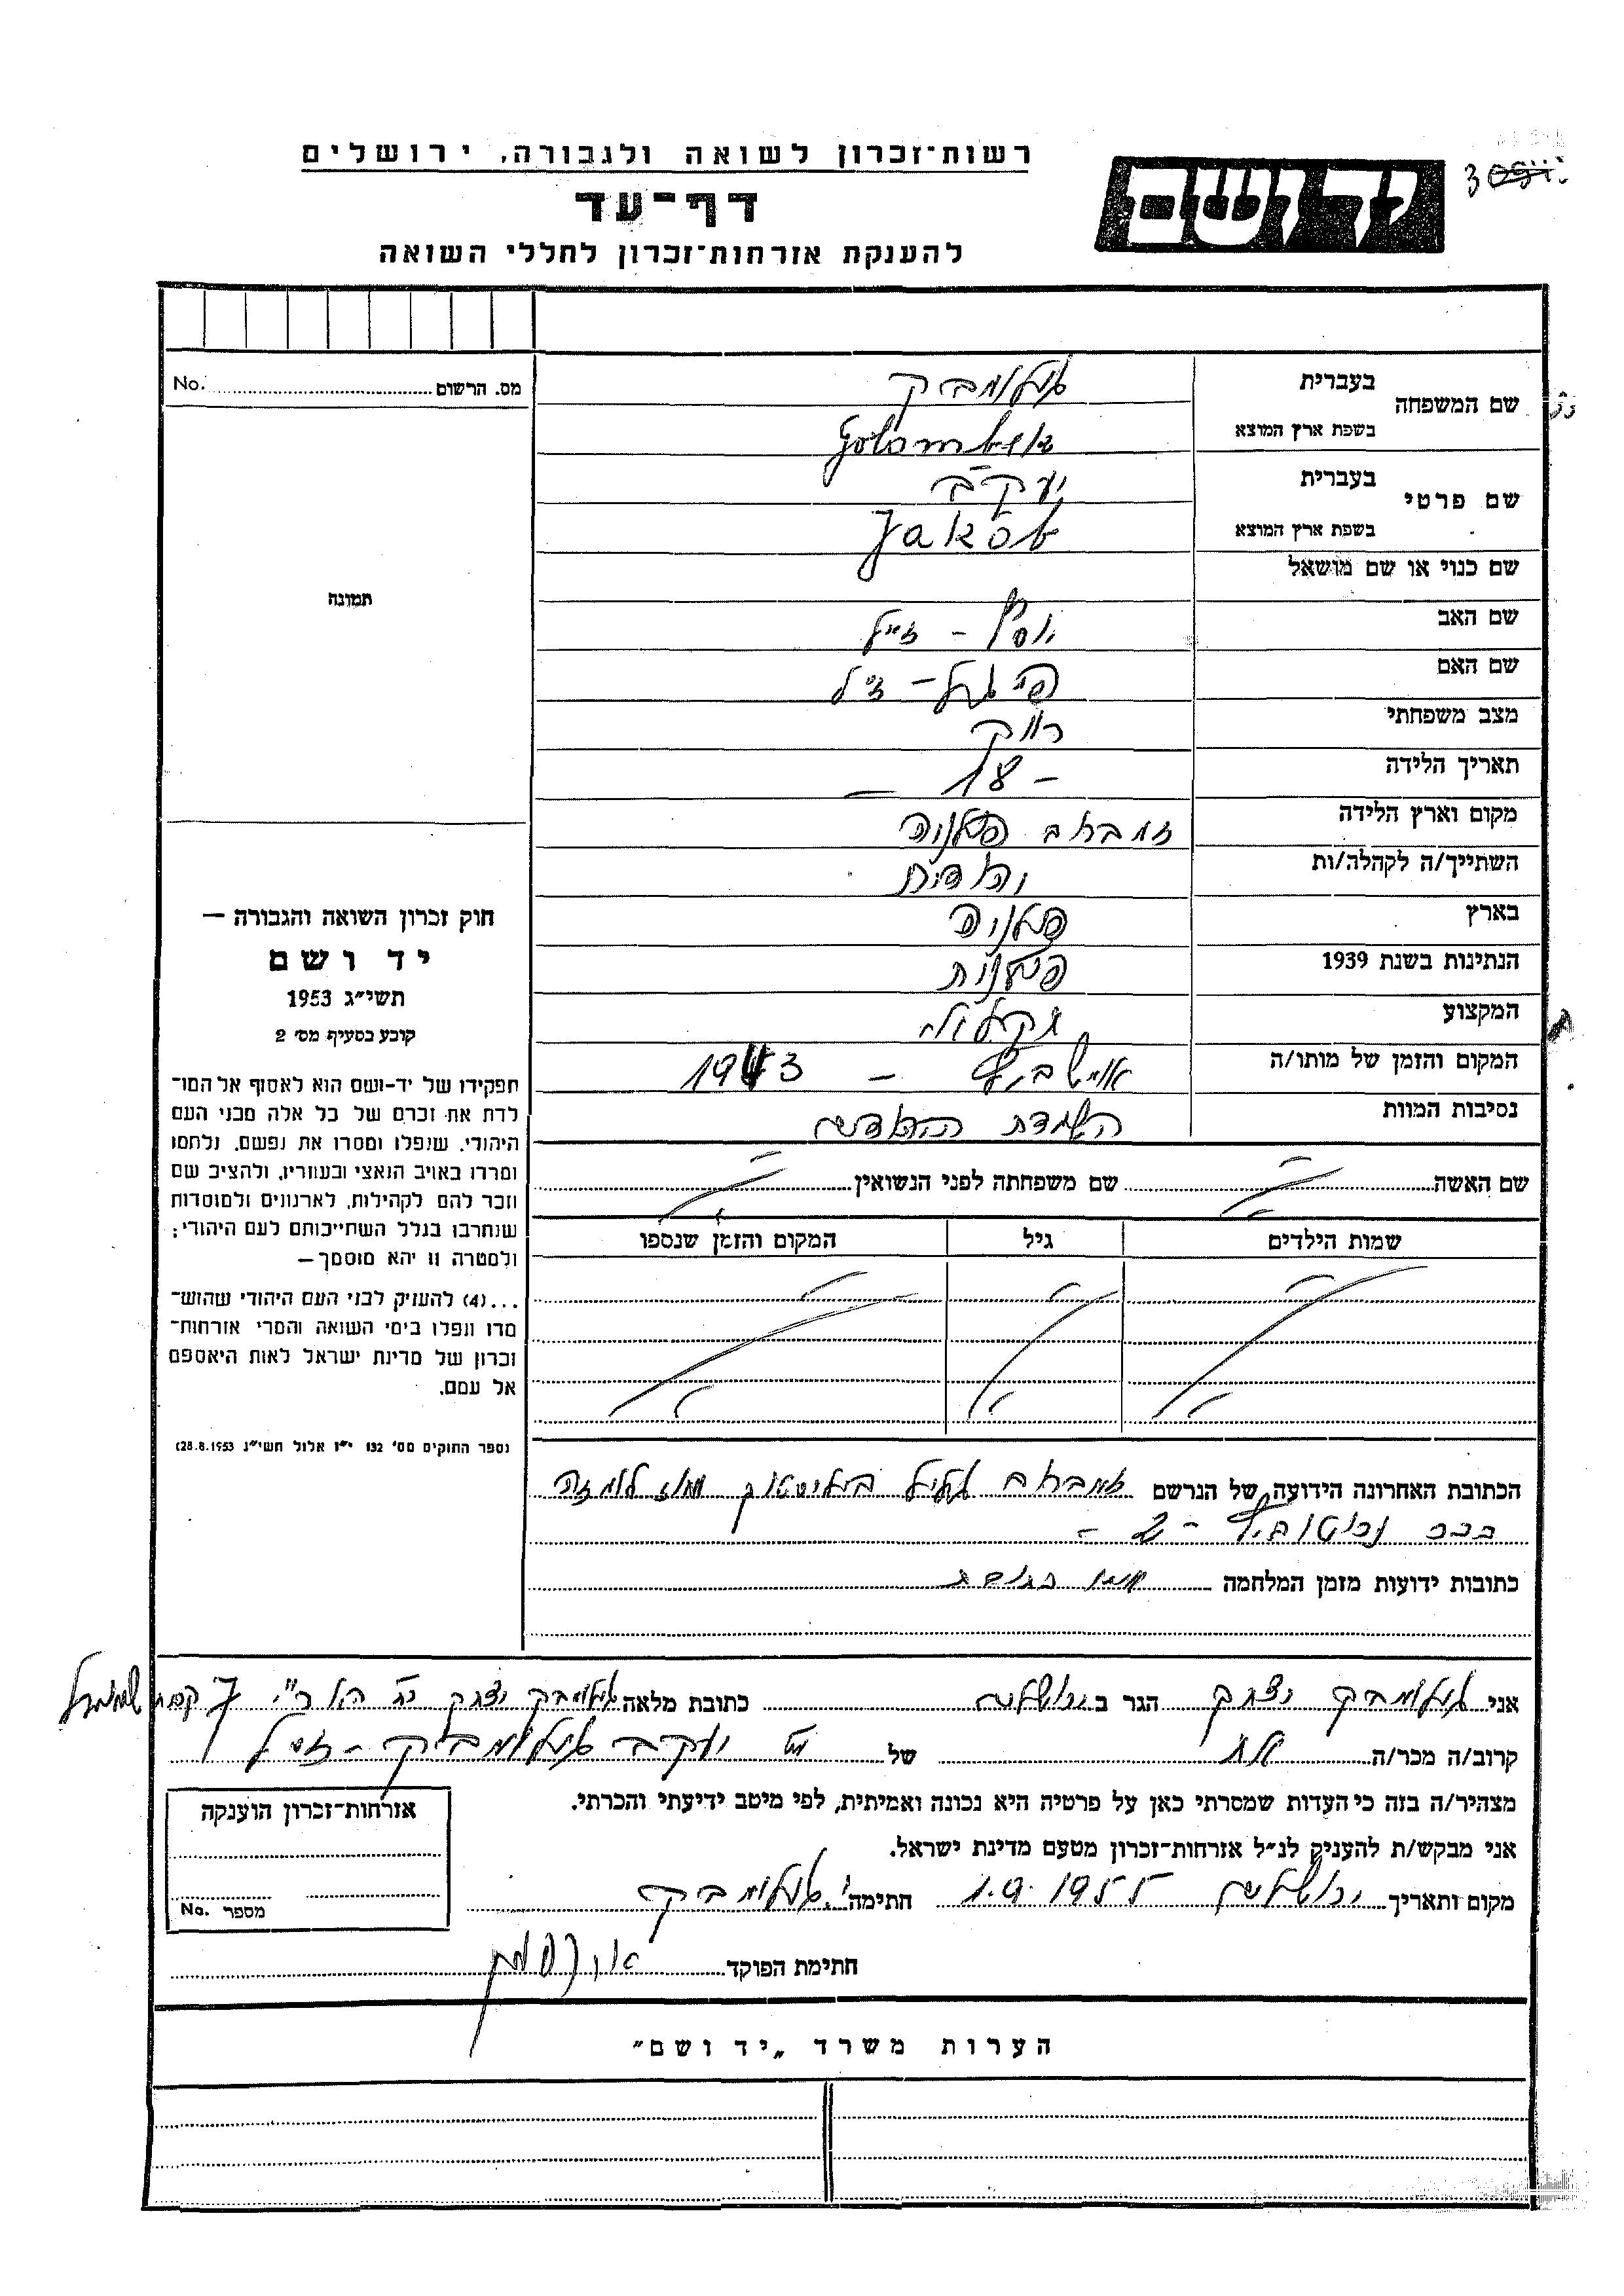 רשות־זכרון לשואה ולגבורה, ירושלים
יד ושם
דף־עד
להענקת אזרחות־זכרון לחללי השואה
מס. הרשום No.
תמונה
שם המשפחה בעברית גולומבק
בשפת ארץ המוצא Golombek
שם פרטי בעברית יעקב
בשפת ארץ המוצא Jakób
שם כנוי או שם מושאל
שם האב יוסף - ז"ל
שם האם פייגל - ז"ל
מצב משפחתי רווק
תאריך הלידה - 18 -
מקום וארץ הלידה זמברוב פולניה
השתייך/ה לקהלה/ות יהודית
בארץ פולניה
הנתינות בשנת 1939 פולנית
המקצוע
המקום והזמן של מותו/ה אושביץ - 1943
נסיבות המוות השמדת היהודים
שם האשה שם משפחתה לפני הנשואין
שמות הילדים גיל המקום והזמן שנספו
הכתובת האחרונה הידועה של הנרשם זמברוב גליל ביליסטוק מחוז לומזה
ככר - 2 -
כתובות ידועות מזמן המלחמה אותו כתובת
חוק זכרון השואה והגבורה —
יד ושם
תשי"ג 1953
קובע בסעיף מס' 2
תפקידו של יד-ושם הוא לאסוף אל המו־
לדת את זכרם של כל אלה מבני העם
היהודי, שנפלו ומסרו את נפשם, נלחמו
ומרדו באויב הנאצי ובעוזריו, ולהציב שם
וזכר להם לקהילות, לארגונים ולמוסדות
שנחרבו בגלל השתייכותם לעם היהודי;
ולמטרה זו יהא מוסמך —
...(4) להעניק לבני העם היהודי שהוש־
מדו ונפלו בימי השואה והמרי אזרחות־
זכרון של מדינת ישראל לאות היאספם
אל עמם.
(ספר החוקים מס' 132 י"ז אלול תשי"ג 28.8.1953)
אני גולומבק יצחק הגר ב ירושלים כתובת מלאה גולומבק יצחק קרית שמואל
קרוב/ה מכר/ה אח של יעקב גולומביק - ז"ל
מצהיר/ה בזה כי העדות שמסרתי כאן על פרטיה היא נכונה ואמיתית, לפי מיטב ידיעתי והכרתי.
אני מבקש/ת להעניק לנ"ל אזרחות־זכרון מטעם מדינת ישראל.
מקום ותאריך ירושלים 1.9.1955 חתימה י. גולומבק
חתימת הפוקד
אזרחות־זכרון הוענקה
מספר No.
הערות משרד „יד ושם"